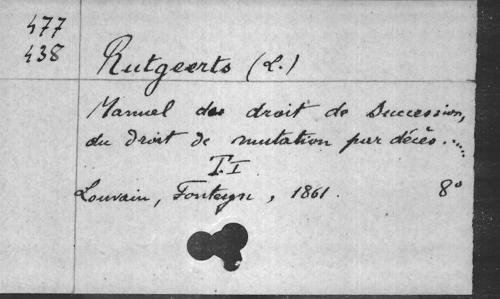 477
438
Rutgeerts (L.)
Manuel du droit de Succession,
du droit de mutation par décès.....
T.I
Louvain, Fonteyn, 1861. 8°